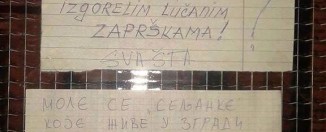 IZGORELIM LUČANIM
ZAPRŠKAMA!
SVAŠTA
МОЛЕ СЕ СЕЉАНКЕ
КОЈЕ ЖИВЕ У ЗГРАДИ